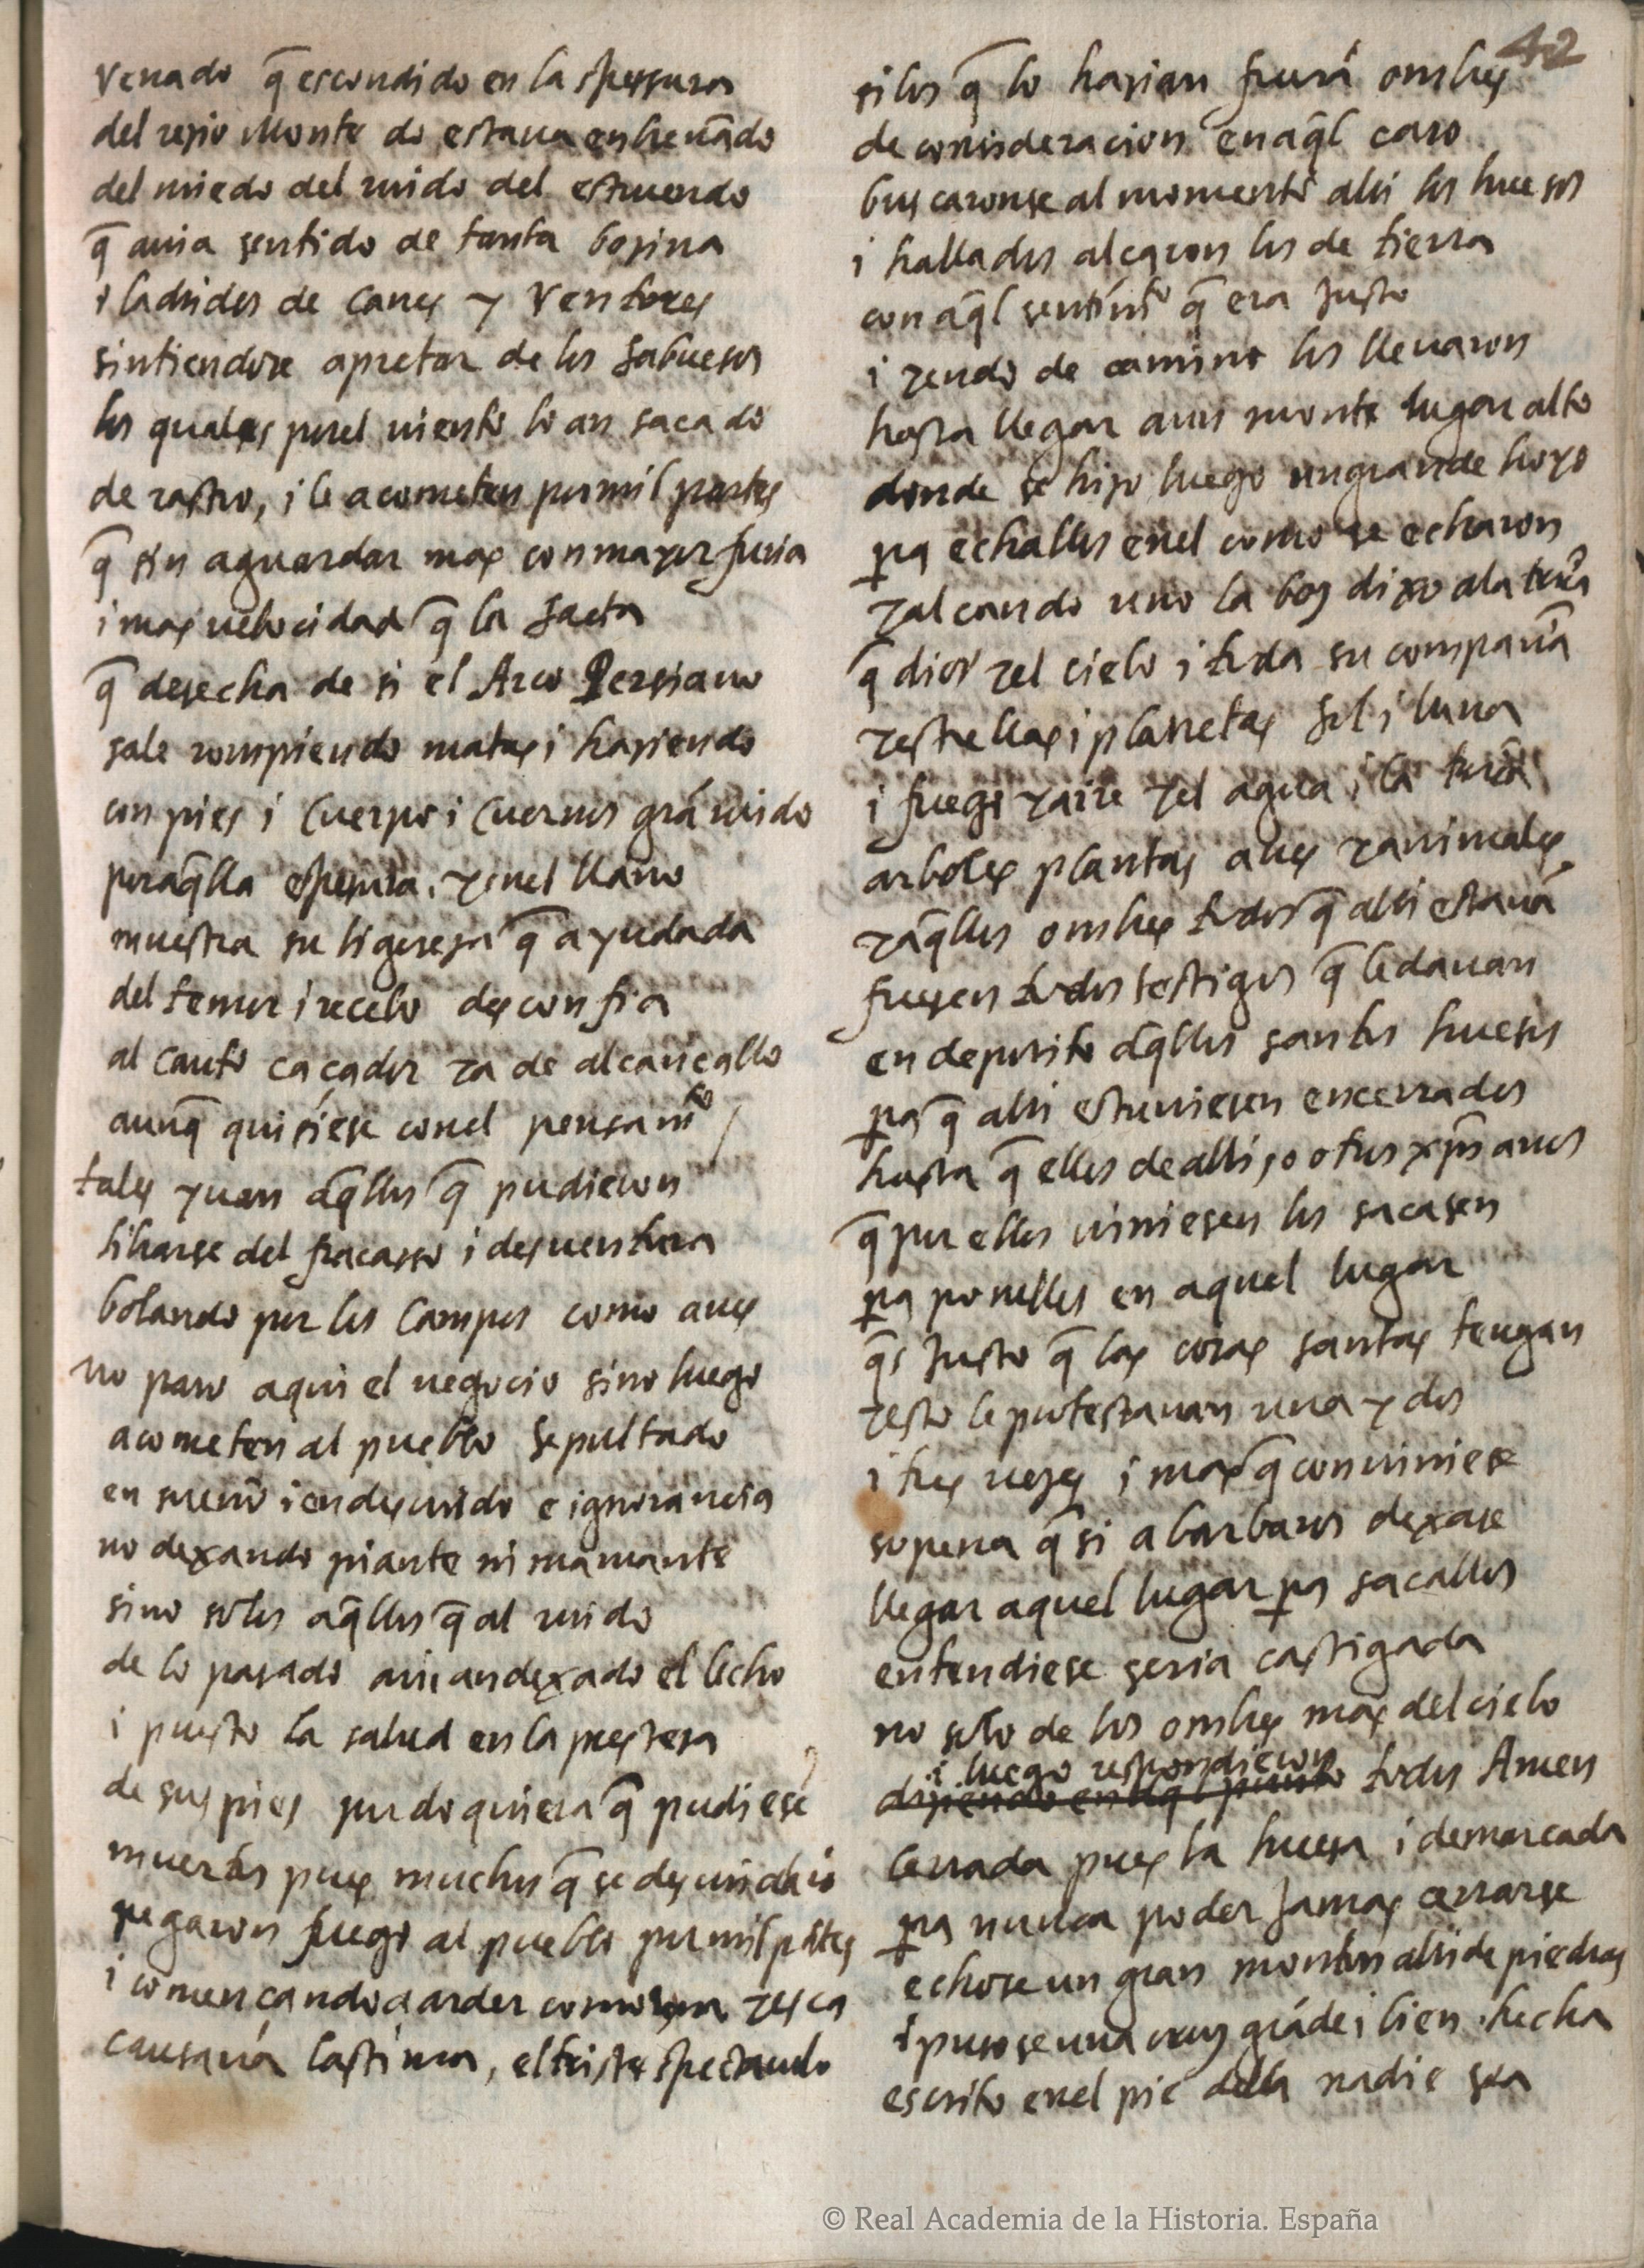 42
venado q̃ escondido en la spessura
del resio Monte do estaua entreuãdo
del miedo del ruido del estruendo
q̃ auia sentido de tanta bosina
i ladridos de canes y ventores
sintiendose apretar de los sabuesos
los quales porel viento lo an sacado
de rastro, i le acometen por mil partes
q̃ sin aguardar mas con mayor furia
i mas velocidad q̃ la saeta
q̃ desecha de si el Arco Persiano
sale rompiendo matas i hasiendo
con pies i cuerpo i cuernos grã ruido
por aq̃lla espesura, y enel llano
muestra su ligeresa q̃ ayudada
del temor i recelo desconfia
al cauto caçador ya de alcançallo
aunq̃ quisiese conel pensamito
tales yuan aq̃llos q̃ pudieron
librarse del fracasso i desuentura
bolando por los campos como aues
no paro aqui el negocio sino luego
acometen al pueblo sepultado
en sueño i en descuido e ignorancia
no dexando piante ni mamante
sino solos aq̃llos q̃ al ruido
de lo pasado auian dexado el lecho
i puesto la salud en la presteza
de sus pies por do quiera q̃ pudiese
muertos pues muchos q̃ se descuidarõ
pegaron fuego al pueblo por mil ptes
i començando a arder como yesca
causaua lastima, el triste spectaculo
si los q̃ lo hasian fuerã ombres
de consideracion en aq̃l caso
buscaronse al momento alli los huesos
i hallados alçaron los de tierra
con aq̃l sentimto q̃ era justo
i yendo de camino los lleuaron
hasta llegar a un monte lugar alto
donde se hizo luego un grande hoyo
pa echallos enel como se echaron
y alcando uno la boz dixo ala tierra
q̃ dios y el cielo i toda su compañia
y estrellas i planetas sol i luna
i fuego y aire y el agua i la tierra
arboles plantas aues y animales
y aq̃llos ombres todos q̃ alli estauã
fuesen todos testigos q̃ le dauan
en deposito aq̃llos santos huesos
pa q̃ alli estuuiesen encerrados
hasta q̃ ellos de alli, o otros xp̃ianos
q̃ por ellos uiniesen los sacasen
pa ponellos en aquel lugar
q̃s justo q̃ las cosas santas tengan
y esto le protestauan una y dos
i tres uezes i mas q̃ conuiniese
so pena q̃ si a barbaros dexase
llegar aquel lugar pa sacallos
entendiese seria castigada
no solo de los ombres mas del cielo
i luego respondieron
disiendo en aq̃l punto todos Amen
cerrada pues la huesa i demarcada
pa nunca poder jamas cerrarse
echose un gran monton alli de piedras
i pusose una cruz grãde i bien hecha
escrito enel pie della nadie sea
© Real Academia de la Historia. España